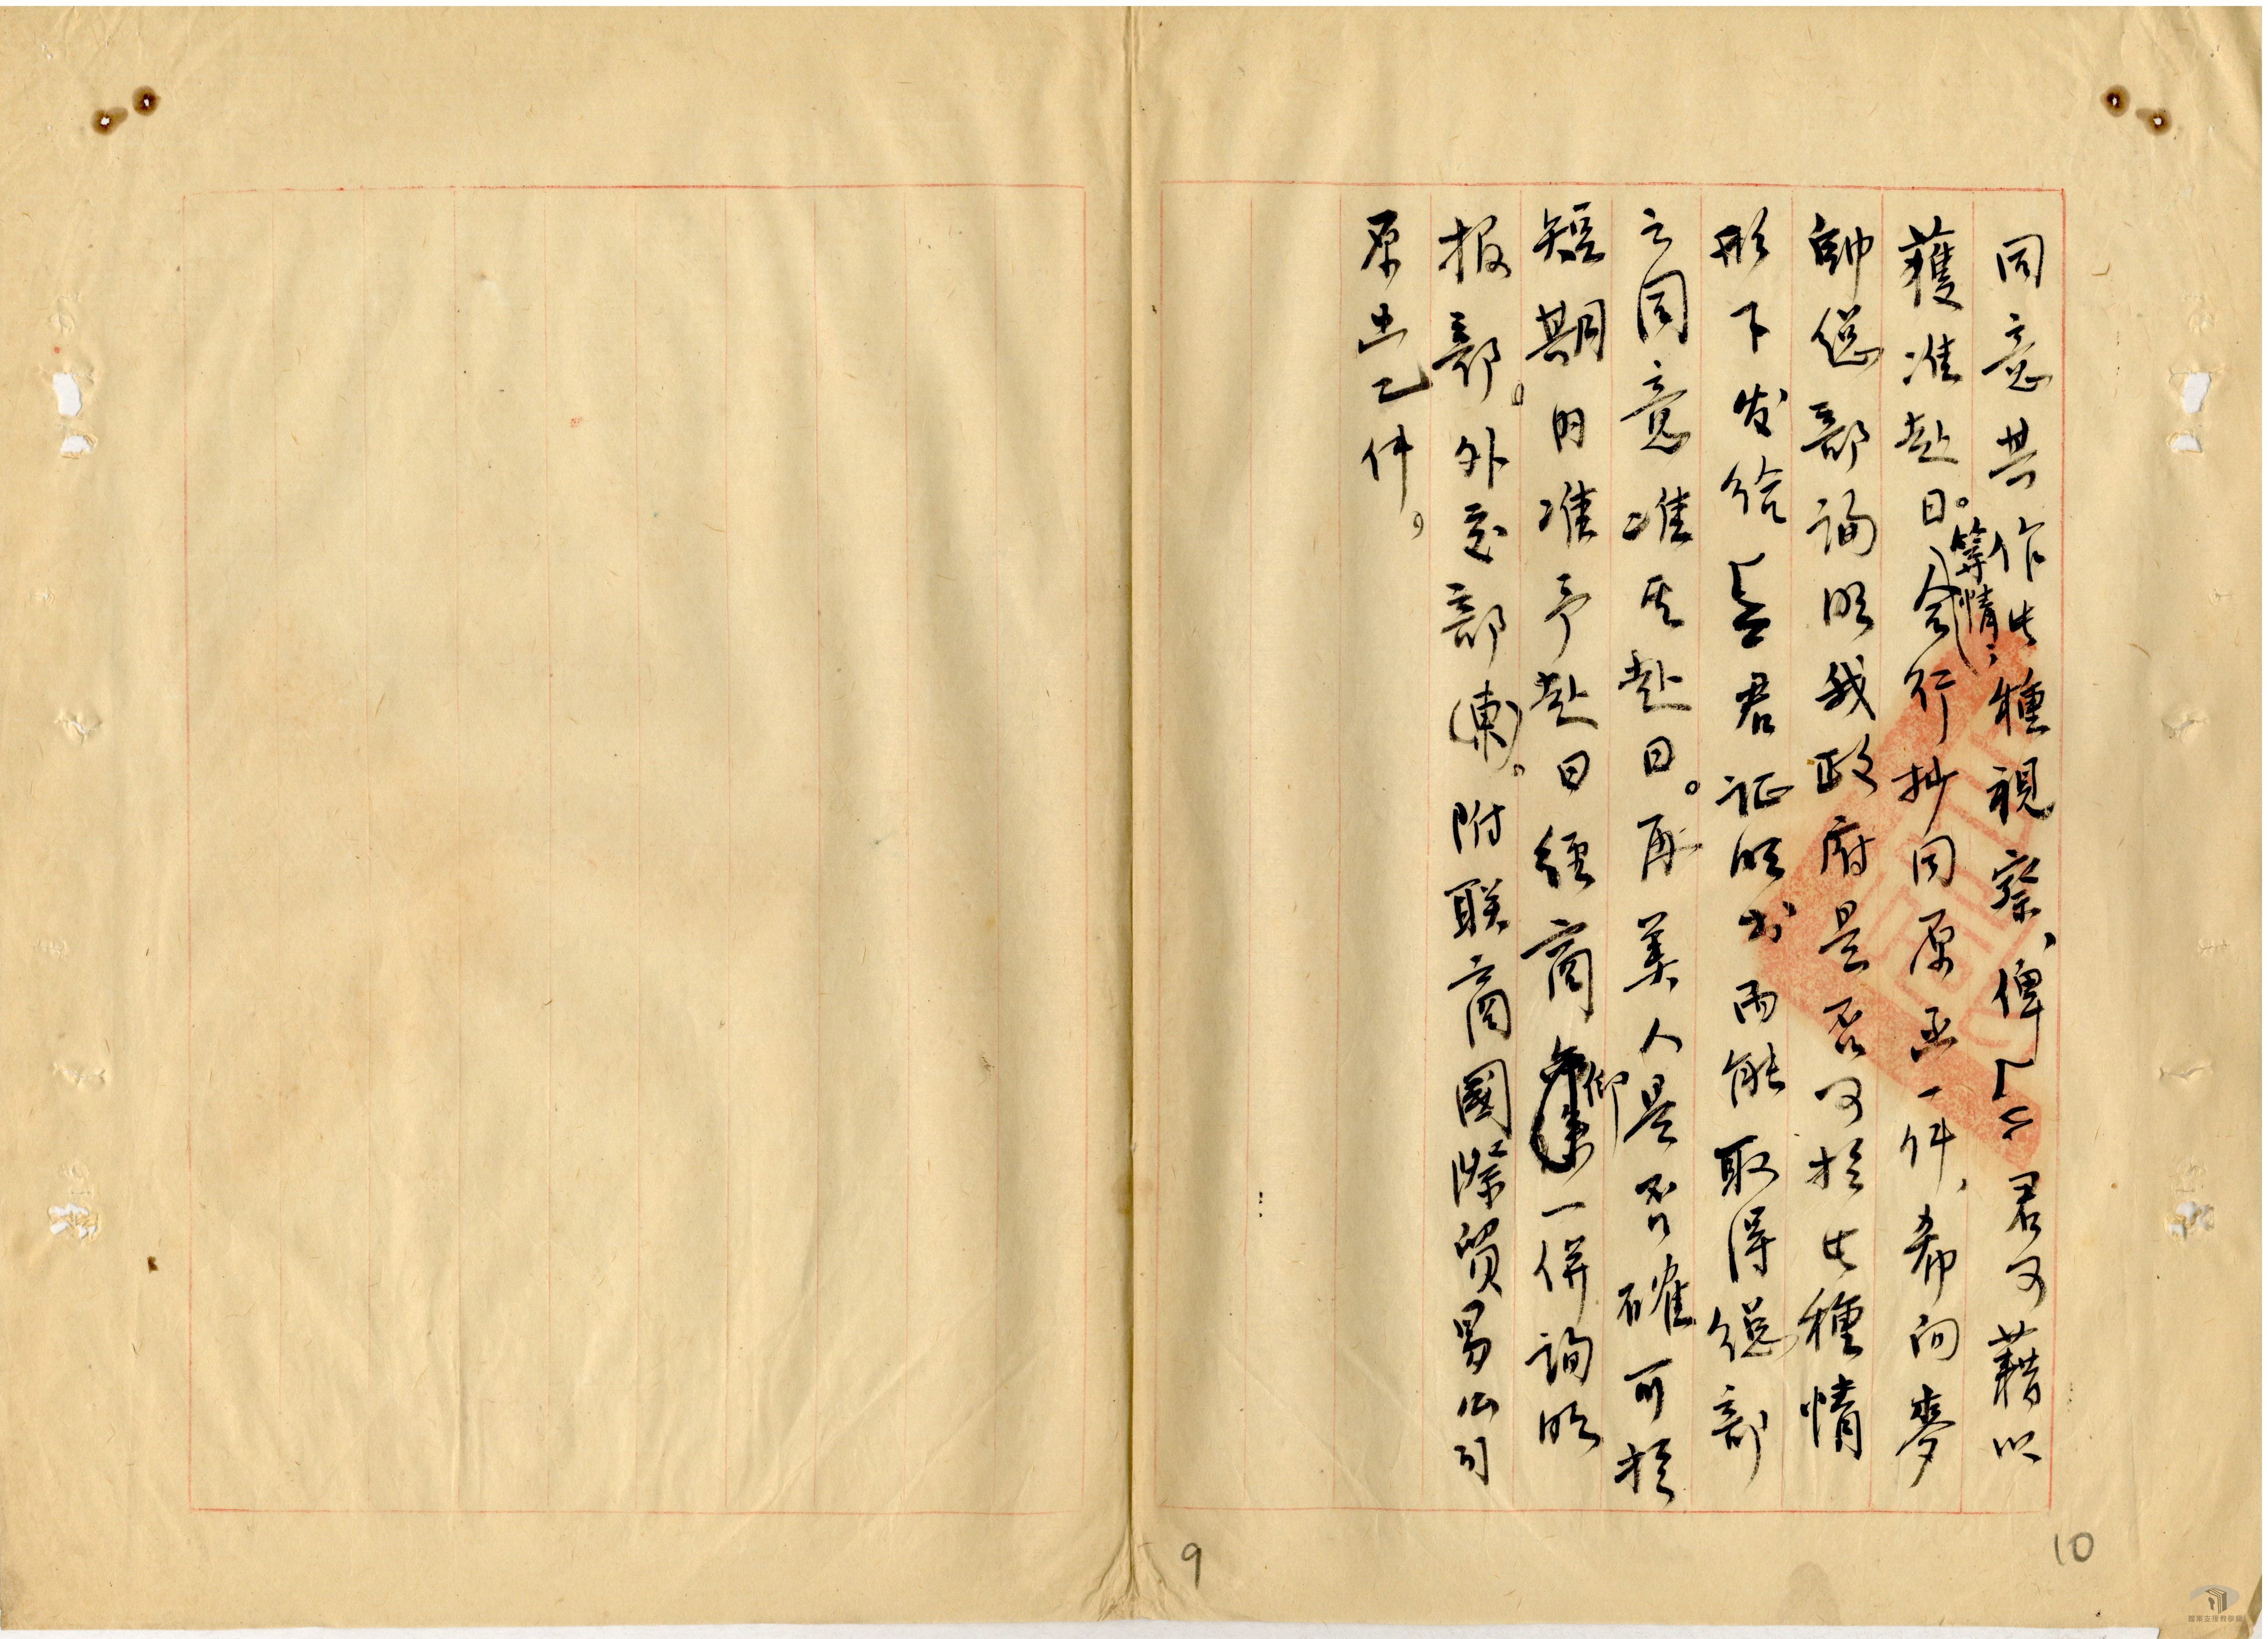 同意其作此種視察、俾「亠君可藉以
獲准赴日。等情、合行抄同原函一件、希向麥
帥總部詢明我政府是否可於此種情
形下发給「亠君证明书而能取得總部
之同意准其赴日。再美人是否確可於
短期內准予赴日經商仰一併詢明
报部。外交部(東)。附联商國際貿易公司
原函乙件。
9
10